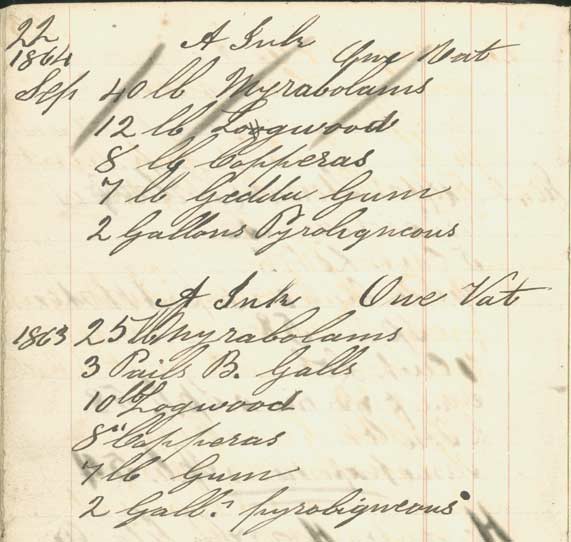 22
1864 A Ink One Vat
Sep 40 lb Myrabolams
12 lb Logwood
8 lb Copperas
7 lb Gedda Gum
2 Gallons Pyroligneous
A Ink One Vat
1863 25 lb Myrabolams
3 Pails B. Galls
10 lbs Logwood
8 " Copperas
7 lb Gum
2 Galls. pyroligneous